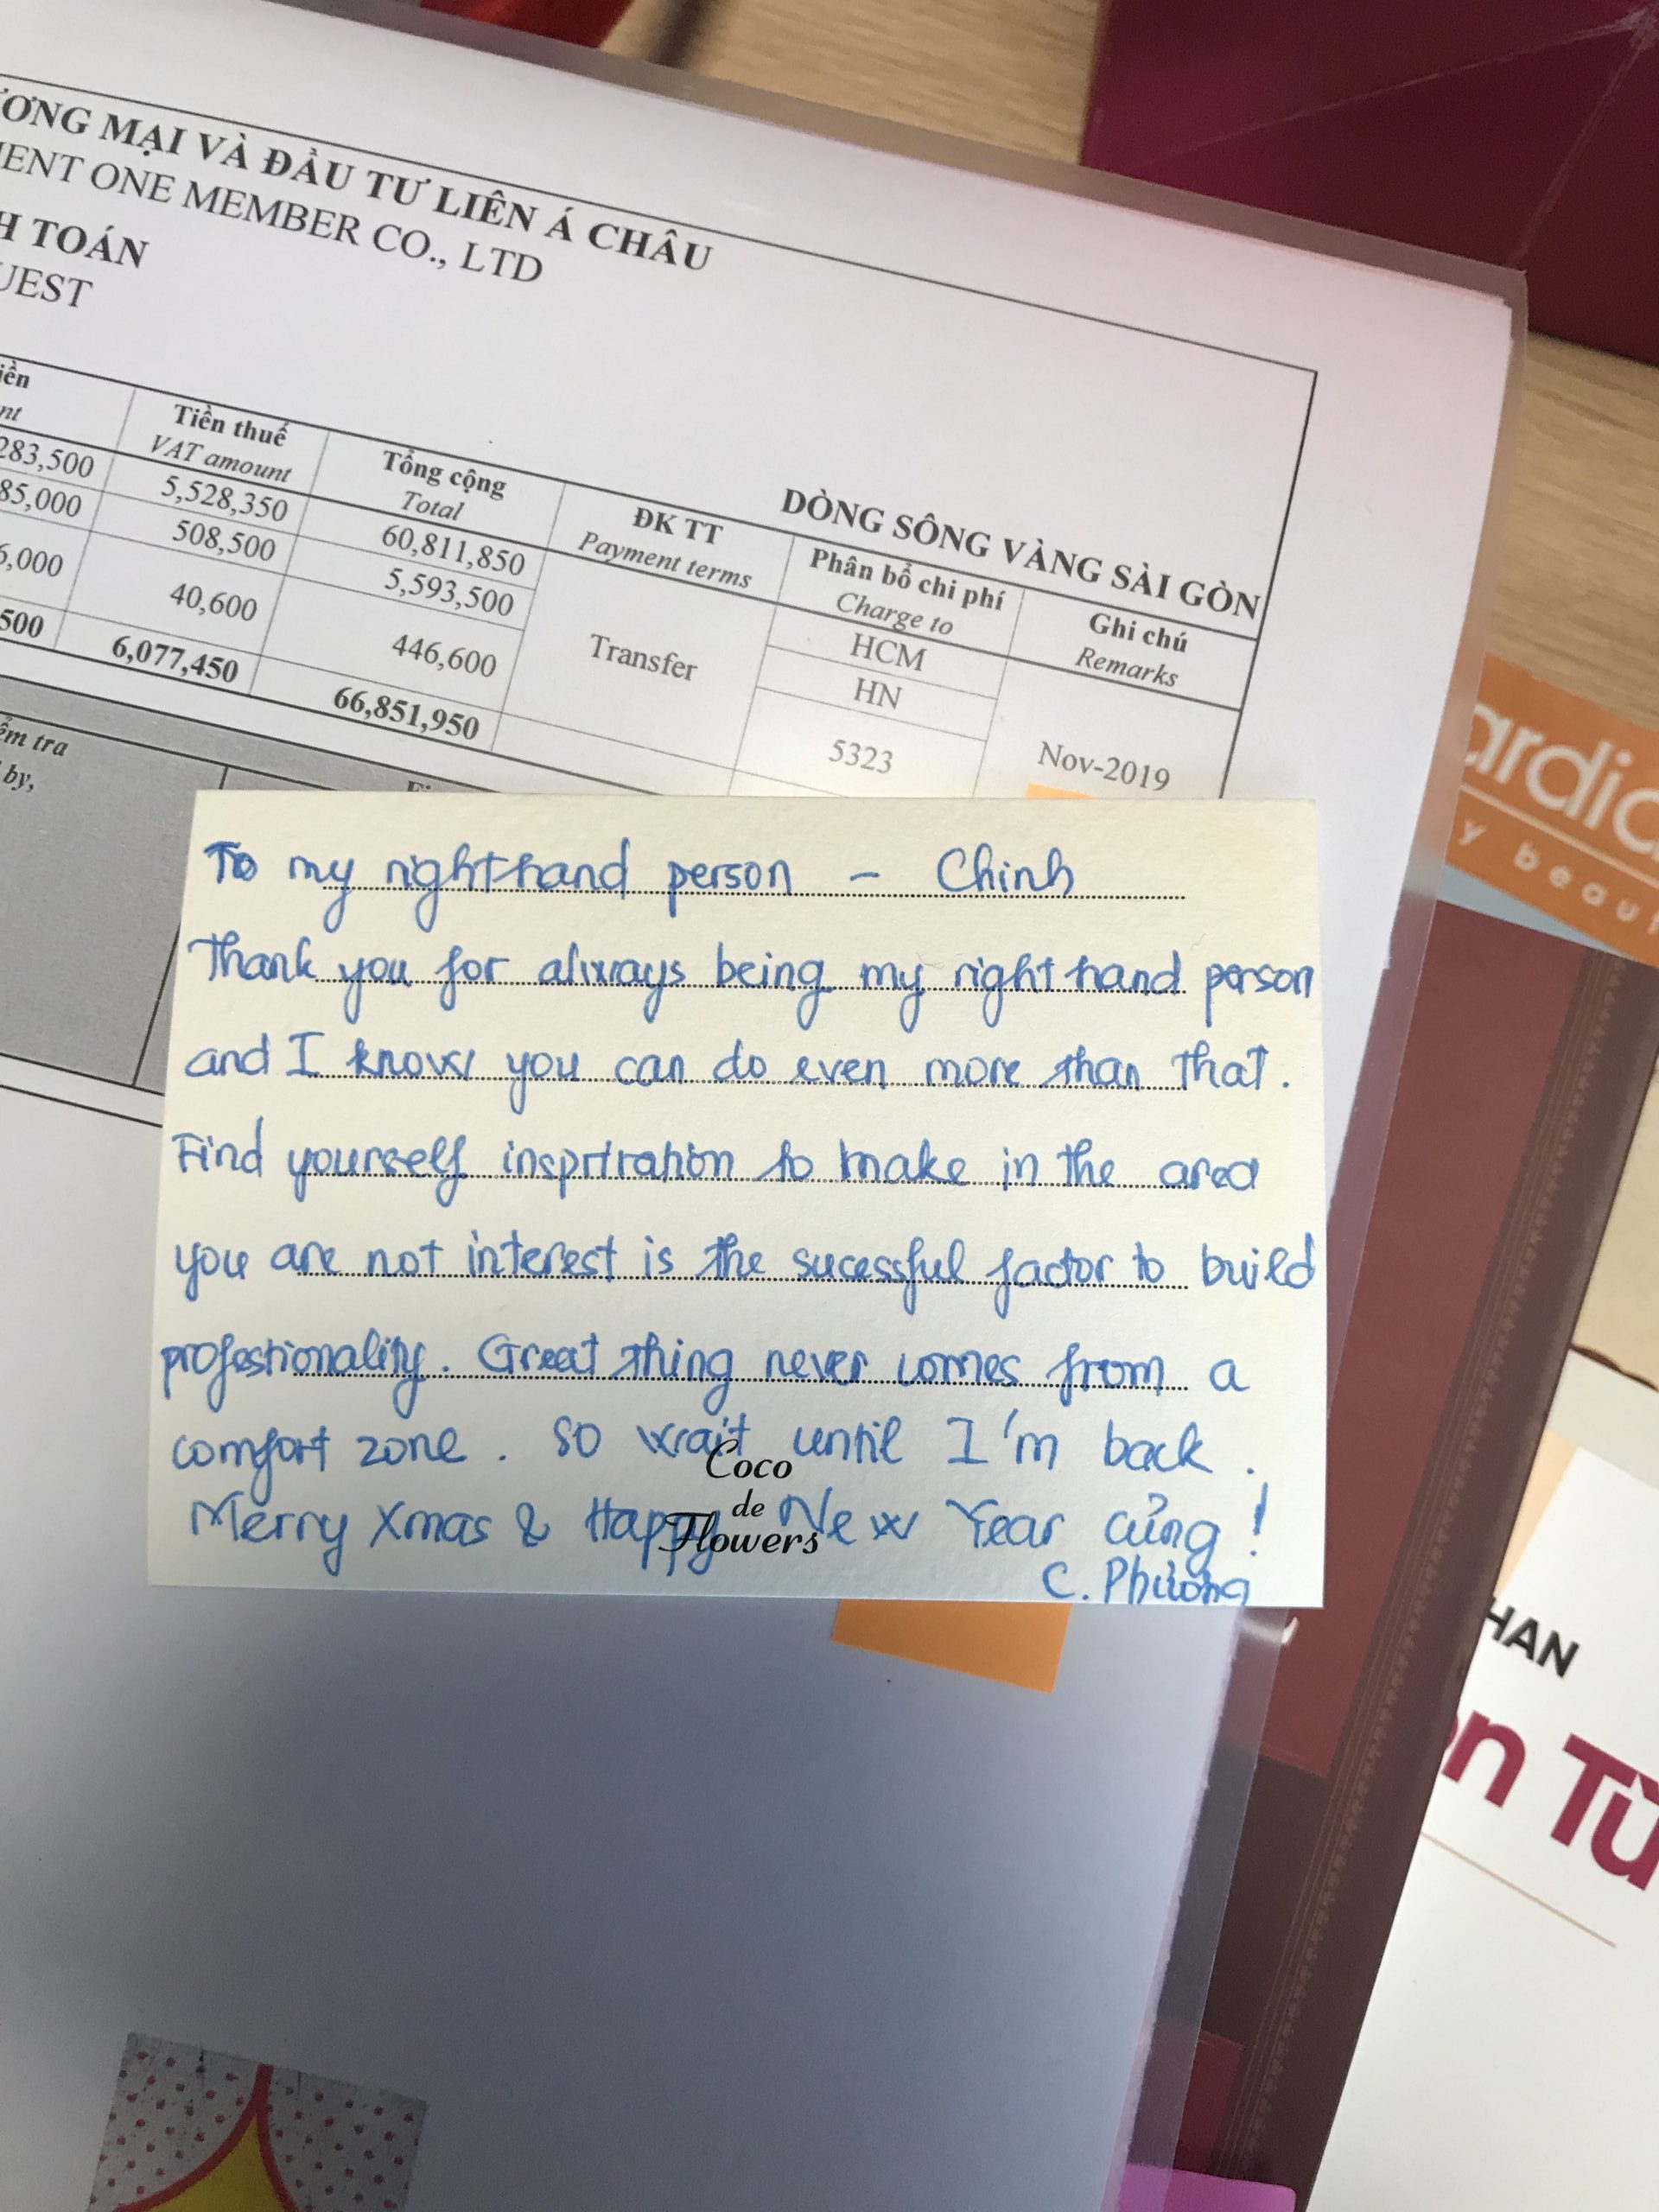 ƯƠNG MẠI VÀ ĐẦU TƯ LIÊN Á CHÂU
ENT ONE MEMBER CO., LTD
H TOÁN
UEST
DÒNG SÔNG VÀNG SÀI GÒN
iền Tiền thuế Tổng cộng ĐK TT Phân bổ chi phí Ghi chú
nt VAT amount Total Payment terms Charge to Remarks
283,500 5,528,350 60,811,850 Transfer HCM Nov-2019
85,000 508,500 5,593,500 HN
6,000 40,600 446,600 5323
500 6,077,450 66,851,950
ểm tra
by,
To my right hand person - Chinh
Thank you for always being my right hand person
and I know you can do even more than that.
Find yourself inspriration to make in the area
you are not interest is the sucessful factor to build
profestionality. Great thing never comes from a
comfort zone. So wait until I'm back.
Merry Xmas & Happy New Year cưng!
C. Phương
Coco
de
Flowers
ardia
y beaut
HAN
n Từ